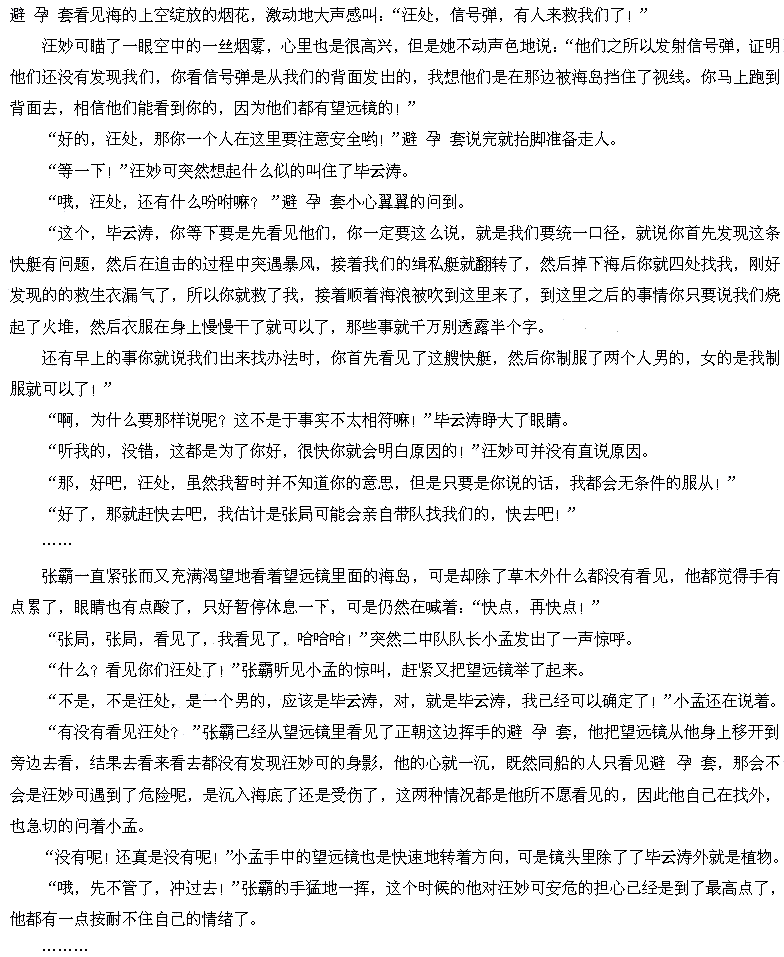 避 孕 套看见海的上空绽放的烟花，激动地大声感叫：“汪处，信号弹，有人来救我们了！”
汪妙可瞄了一眼空中的一丝烟雾，心里也是很高兴，但是她不动声色地说：“他们之所以发射信号弹，证明
他们还没有发现我们，你看信号弹是从我们的背面发出的，我想他们是在那边被海岛挡住了视线。你马上跑到
背面去，相信他们能看到你的，因为他们都有望远镜的！”
“好的，汪处，那你一个人在这里要注意安全哟！”避 孕 套说完就抬脚准备走人。
“等一下！”汪妙可突然想起什么似的叫住了毕云涛。
“哦，汪处，还有什么吩咐嘛？ ”避 孕 套小心翼翼的问到。
“这个，毕云涛，你等下要是先看见他们，你一定要这么说，就是我们要统一口径，就说你首先发现这条
快艇有问题，然后在追击的过程中突遇暴风，接着我们的缉私艇就翻转了，然后掉下海后你就四处找我，刚好
发现的的救生衣漏气了，所以你就救了我，接着顺着海浪被吹到这里来了，到这里之后的事情你只要说我们烧
起了火堆，然后衣服在身上慢慢干了就可以了，那些事就千万别透露半个字。
还有早上的事你就说我们出来找办法时，你首先看见了这艘快艇，然后你制服了两个人男的，女的是我制
服就可以了！”
“啊，为什么要那样说呢？这不是于事实不太相符嘛！”毕云涛睁大了眼睛。
“听我的，没错，这都是为了你好，很快你就会明白原因的！”汪妙可并没有直说原因。
“那，好吧，汪处，虽然我暂时并不知道你的意思，但是只要是你说的话，我都会无条件的服从！”
“好了，那就赶快去吧，我估计是张局可能会亲自带队找我们的，快去吧！”
……
张霸一直紧张而又充满渴望地看着望远镜里面的海岛，可是却除了草木外什么都没有看见，他都觉得手有
点累了，眼睛也有点酸了，只好暂停休息一下，可是仍然在喊着：“快点，再快点！”
“张局，张局，看见了，我看见了，哈哈哈！”突然二中队队长小孟发出了一声惊呼。
“什么？看见你们汪处了！”张霸听见小孟的惊叫，赶紧又把望远镜举了起来。
“不是，不是汪处，是一个男的，应该是毕云涛，对，就是毕云涛，我已经可以确定了！”小孟还在说着。
“有没有看见汪处？ ”张霸已经从望远镜里看见了正朝这边挥手的避 孕 套，他把望远镜从他身上移开到
旁边去看，结果去看来看去都没有发现汪妙可的身影，他的心就一沉，既然同船的人只看见避 孕 套，那会不
会是汪妙可遇到了危险呢，是沉入海底了还是受伤了，这两种情况都是他所不愿看见的，因此他自己在找外，
也急切的问着小孟。
“没有呢！还真是没有呢！”小孟手中的望远镜也是快速地转着方向，可是镜头里除了了毕云涛外就是植物。
“哦，先不管了，冲过去！”张霸的手猛地一挥，这个时候的他对汪妙可安危的担心已经是到了最高点了，
他都有一点按耐不住自己的情绪了。
………